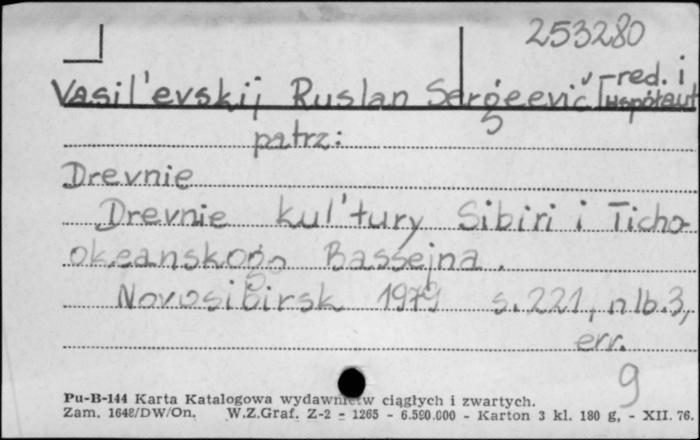 253280
Vasil'evskij Ruslan Sergeevič [red. i
współaut
patrz:
Drevnie
Drevnie kul'tury Sibiri i Ticho-
okeanskogo Bassejna.
Novosibirsk 1979 s. 221, nlb. 3,
err.
9
Pu-B-144 Karta Katalogowa wydawnictw ciągłych i zwartych.
Zam. 1648/DW/On. W.Z.Graf. Z-2 - 1265 - 6.500.000 - Karton 3 kl. 180 g, - XII. 76.